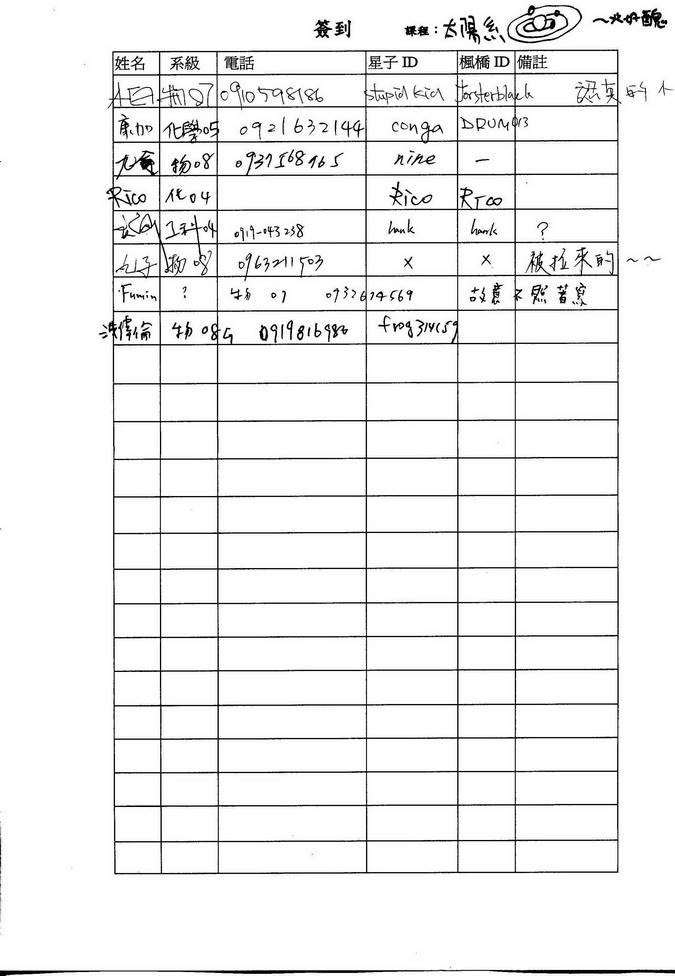 簽到 課程：太陽系 ～好醜
姓名 系級 電話 星子 ID 楓橋 ID 備註
物07 0910598186 stupid kid forsterblack 認真的
康加 化學05 0921632144 conga DRUM013
物08 nine —
Rico 化04 Rico Rico
工科04 0919-043238 hank hank ?
包子 物08 0963211503 × × 被拉來的～～
Fumin ? 物07 0932674569 故意不照著寫
洪偉倫 物08G 0919816986 frog314159